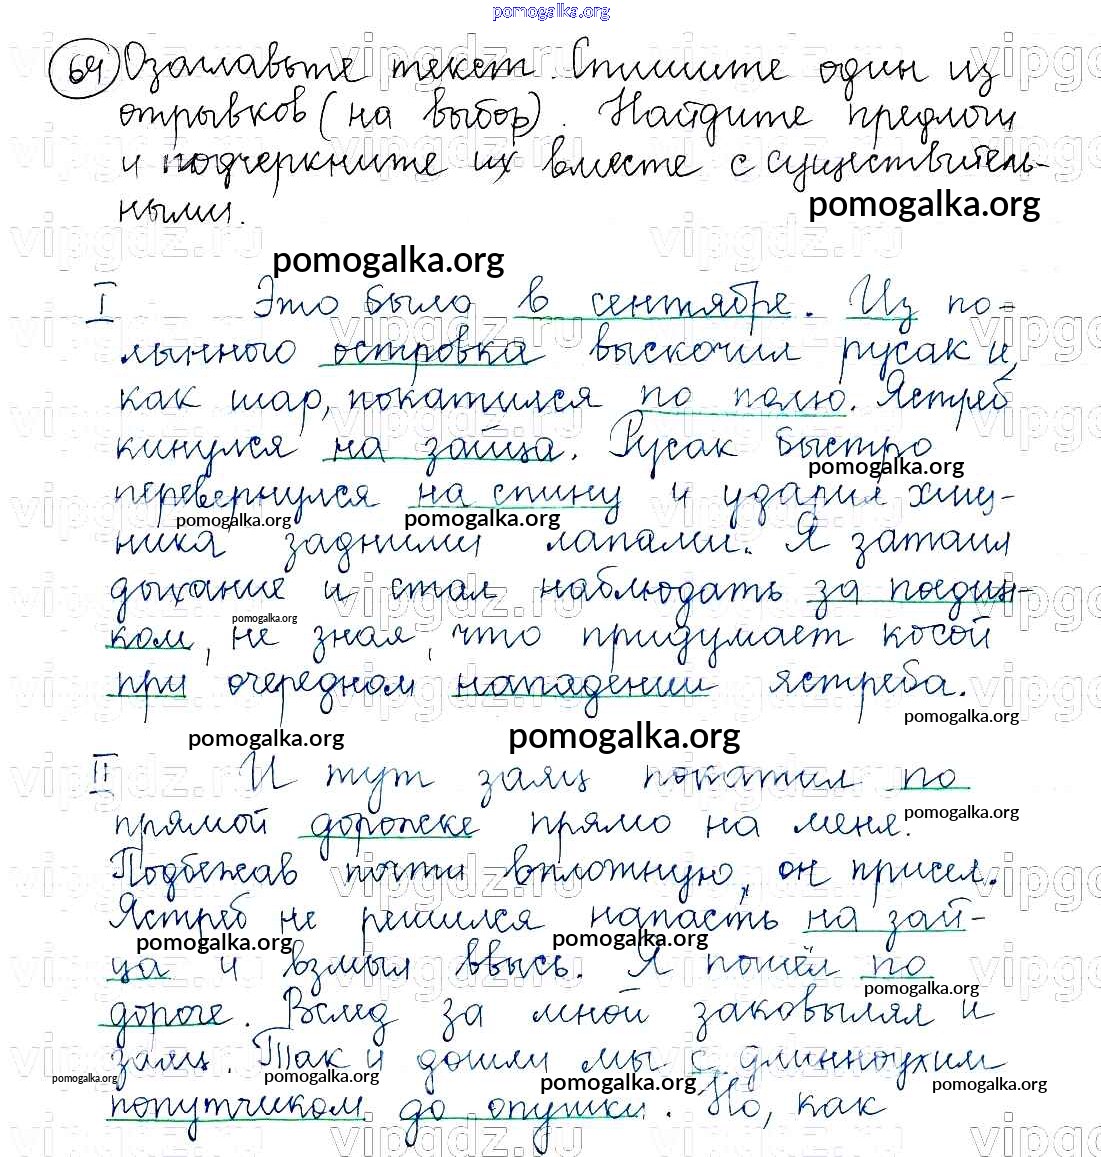 pomogalka.org
64 Озаглавьте текст. Спишите один из
отрывков (на выбор). Найдите предлоги
и подчеркните их вместе с существитель-
ными.
pomogalka.org
pomogalka.org
I Это было в сентябре. Из по-
лынного островка выскочил русак и,
как шар, покатился по полю. Ястреб
кинулся на зайца. Русак быстро
pomogalka.org
перевернулся на спину и ударил хищ-
pomogalka.org pomogalka.org
ника задними лапами. Я затаил
дыхание и стал наблюдать за поедин-
pomogalka.org
ком, не зная, что придумает косой
при очередном нападении ястреба.
pomogalka.org
pomogalka.org pomogalka.org
II И тут заяц покатил по
pomogalka.org
прямой дорожке прямо на меня.
Подбежав почти вплотную, он присел.
Ястреб не решился напасть на зай-
pomogalka.org pomogalka.org
ца и взмыл ввысь. Я пошёл по
pomogalka.org
дороге. Вслед за мной заковылял и
заяц. Так и дошли мы с длинноухим
pomogalka.org pomogalka.org pomogalka.org pomogalka.org
попутчиком до опушки. Но, как